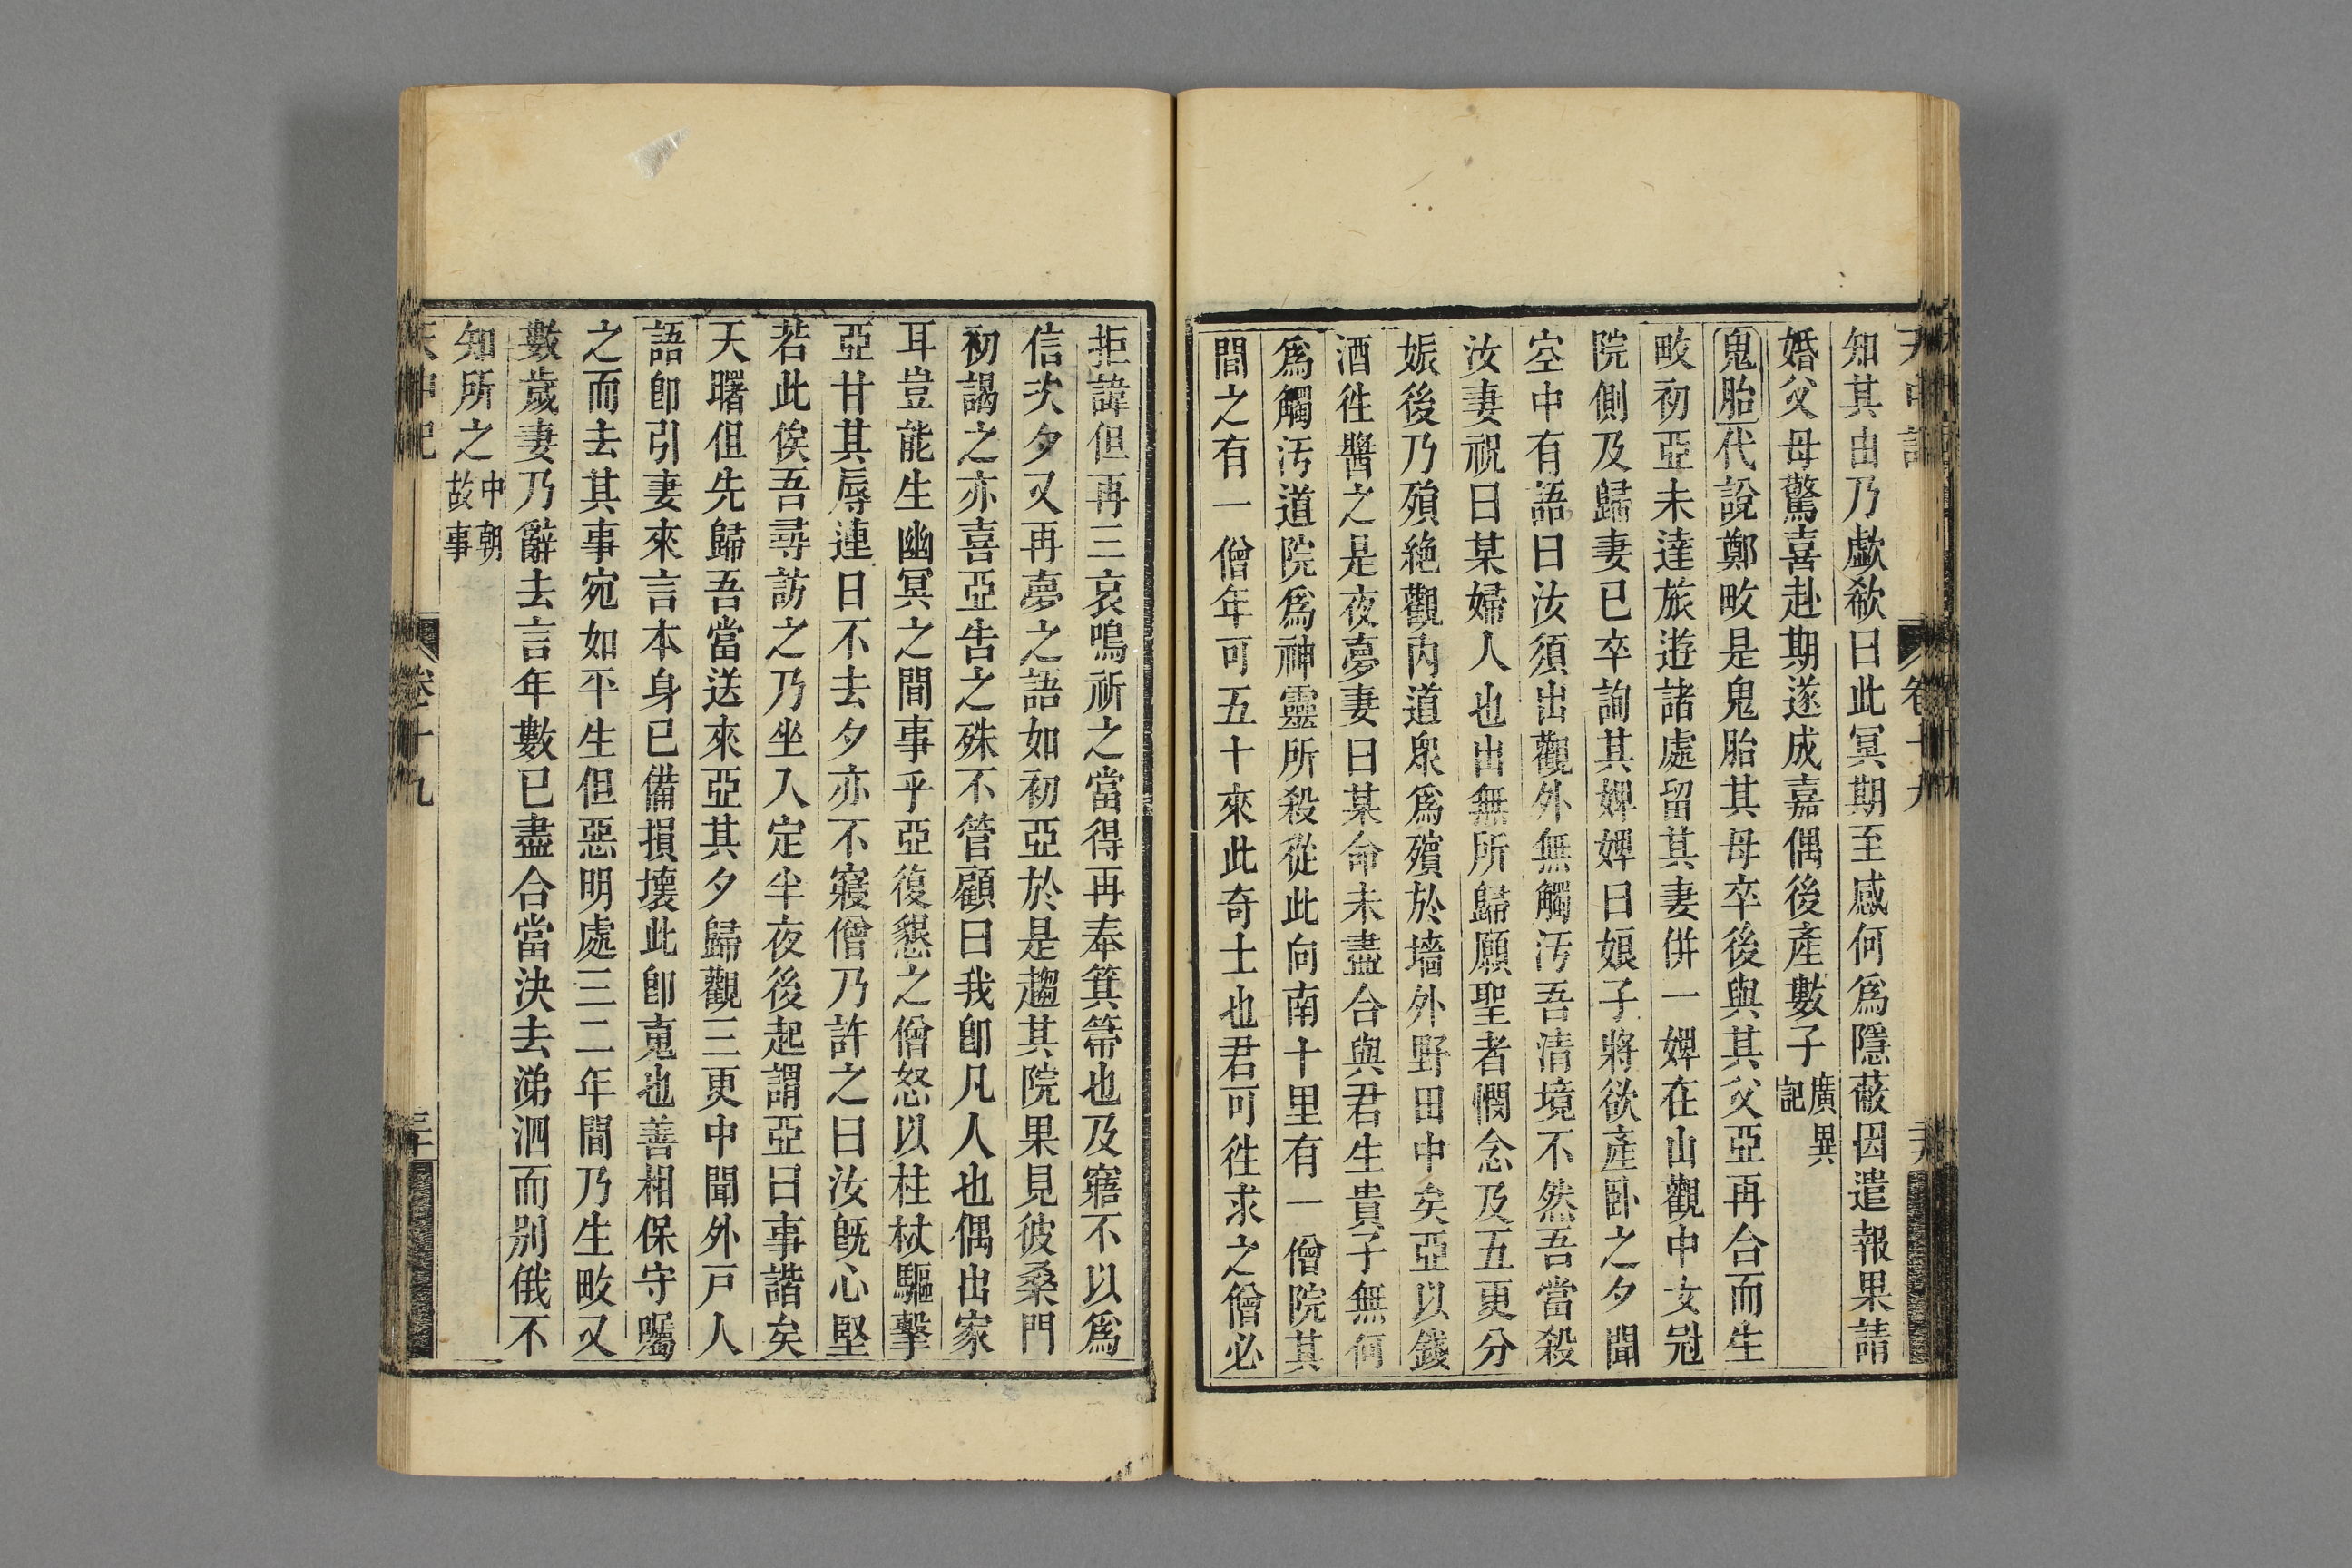 知其由乃歔欷曰此冥期至感何爲隱蔽因遣報果請
婚父母驚喜赴期遂成嘉偶後產數子廣異記
鬼胎代說鄭畋是鬼胎其母卒後與其父亞再合而生
畋初亞未達旅遊諸處留其妻併一婢在山觀中女冠
院側及歸妻已卒詢其婢婢曰娘子將欲產卧之夕聞
空中有語曰汝須出觀外無觸汚吾清境不然吾當殺
汝妻祝曰某婦人也出無所歸願聖者憫念及五更分
娠後乃殞絶觀內道衆爲殯於墻外野田中矣亞以錢
酒徃醬之是夜夢妻曰某命未盡合與君生貴子無何
爲觸汚道院爲神靈所殺從此向南十里有一僧院其
間之有一僧年可五十來此奇士也君可徃求之僧必
拒諱但再三哀鳴祈之當得再奉箕箒也及寤不以爲
信次夕又再夢之語如初亞於是趨其院果見彼桑門
初謁之亦喜亞告之殊不管顧曰我卽凡人也偶出家
耳豈能生幽冥之間事乎亞復懇之僧怒以柱杖驅擊
亞甘其辱連日不去夕亦不寢僧乃許之曰汝旣心堅
若此俟吾尋訪之乃坐入定半夜後起謂亞曰事諧矣
天曙但先歸吾當送來亞其夕歸觀三更中聞外戸人
語卽引妻來言本身已備損壞此卽䰟也善相保守囑
之而去其事宛如平生但惡明處三二年間乃生畋又
數歲妻乃辭去言年數已盡合當決去涕泗而別俄不
知所之中朝故事
天中記 卷十九